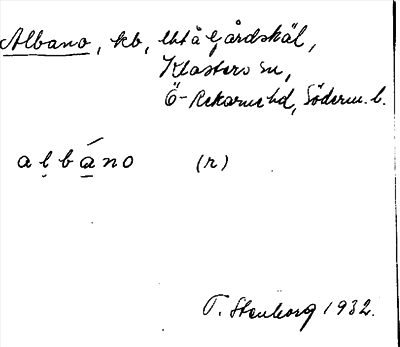 Albano, kb, Utåtgårdskäl,
Klosters sn,
Ö-Rekarne hd, Söderm. l.
albáno (r)
T. Stenborg 1932.